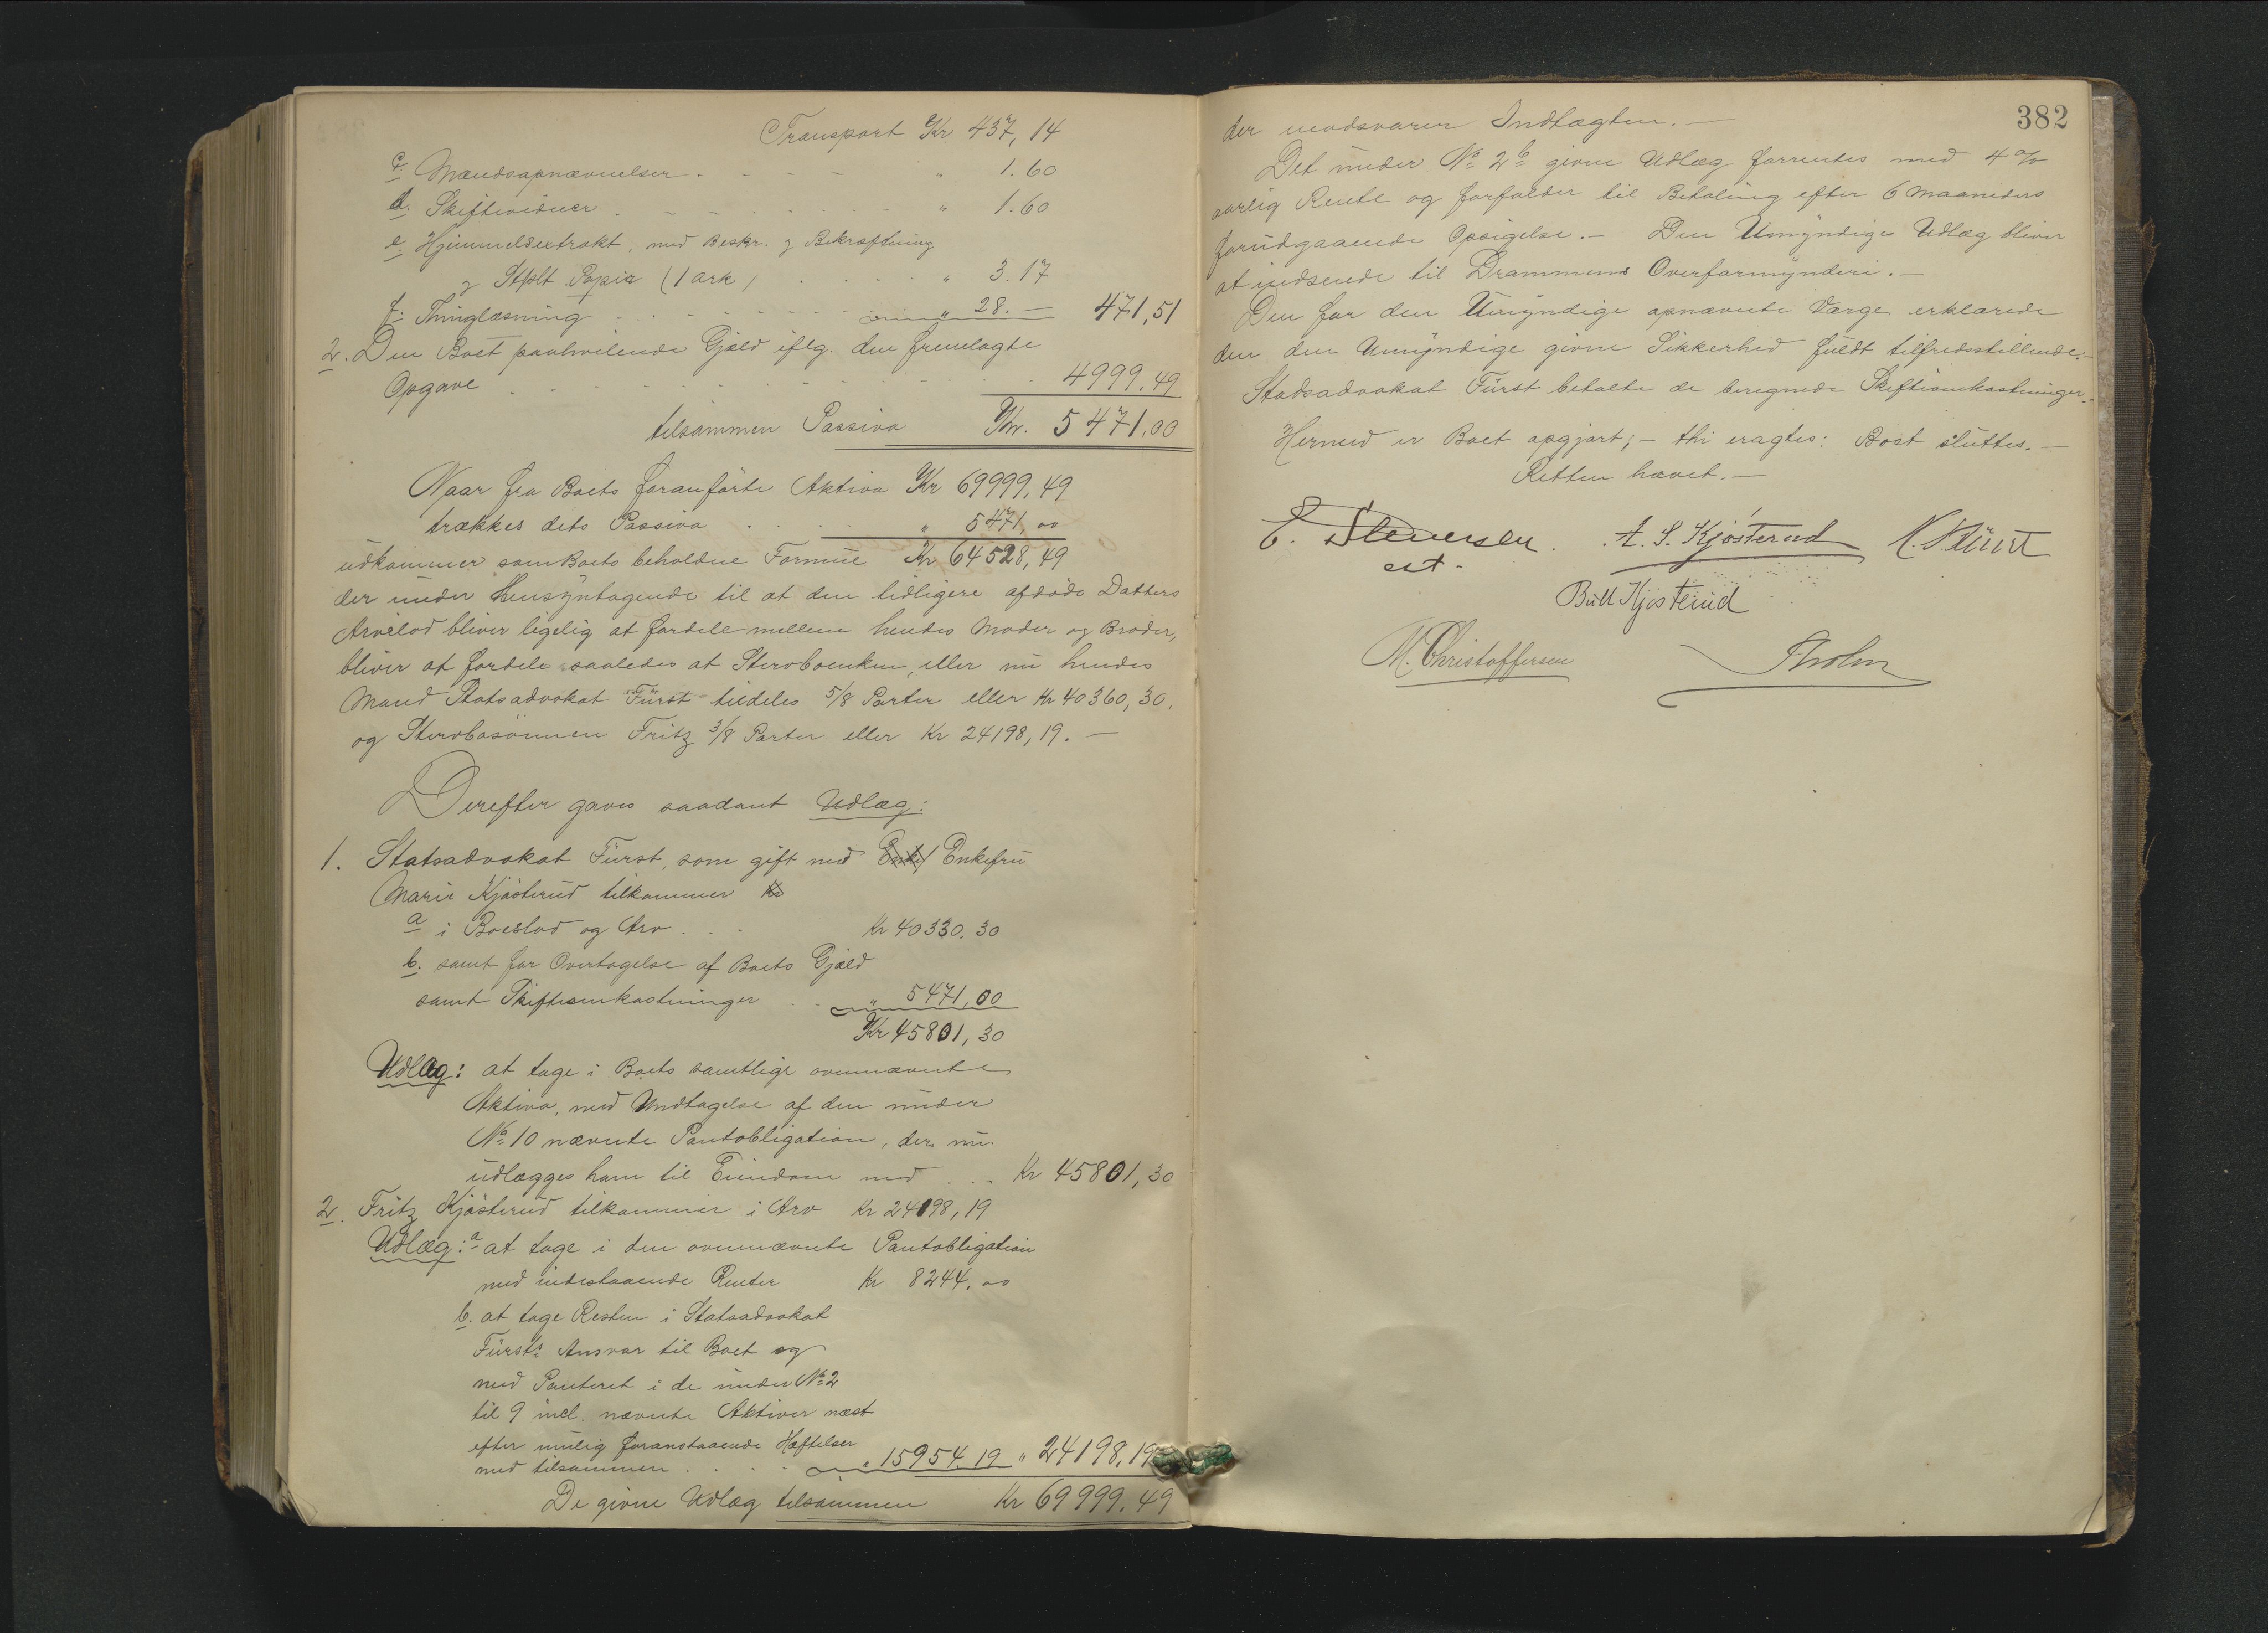 Transport Kr 437, 14
c. Mandsopnævnelser . - - - " 1.60
d. Skiftevidner . - - - - - " 1.60
e. Hjemmelsextrakt, med Beskr. og Bekræftning
og Stplt Papir (1 ark) . . . . " 3.17
f. Thinglæsning . . . . . . " 28. — 471,51
2. Den Boet paahvilende Gjæld iflg. den fremlagte
Opgave . . . . . . . . . 4999.49
tilsammen Passiva Kr. 5471,00
Naar fra Boets foranførte Aktiva Kr 69999,49
trækkes dets Passiva . . . . " 5471,00
udkommer som Boets beholdne Formue Kr 64528,49
der under Hensyntagende til at den tidligere afdøde Datters
Arvelod bliver ligelig at fordele mellem hendes Moder og Broder,
bliver at fordele saaledes at Stervboenken, eller nu hendes
Mand Statsadvokat Fürst tildeles 5/8 Parter eller Kr 40360,30,
og Stervbosønnen Fritz 3/8 Parter eller Kr 24198,19. —
Derefter gaves saadant Udlæg:
1. Statsadvokat Fürst, som gift med Enke/ Enkefru
Marie Kjøsterud tilkommer Kr
a i Boeslod og Arv . . - Kr 40330.30
b. samt for Overtagelse af Boets Gjæld
samt Skifteomkostninger . . " 5471,00
Kr 45801,30
Udlæg: at tage i Boets samtlige ovennævnte
Aktiva, med Undtagelse af den under
No 10 nævnte Pantobligation, der nu
udlægges ham til Eiendom med . . - Kr 45801,30
2. Fritz Kjøsterud tilkommer i Arv Kr 24198,19
Udlæg: a at tage i den ovennævnte Pantobligation
med indestaaende Renter Kr 8244.00
b. at tage Resten i Statsadvokat
Fürsts Ansvar til Boet og
med Panteret i de under No 2
til 9 incl. nævnte Aktiver næst
efter mulig foranstaaende Hæftelser
med tilsammen . . . - " 15954.19 " 24198,19
De givne Udlæg tilsammen Kr 69999.49
382
der modsvarer Indtægten. —
Det under No 2 b givne Udlæg forrentes med 4 %
aarlig Rente og forfalder til Betaling efter 6 Maaneders
forudgaaende Opsigelse. — Den Umyndiges Udlæg bliver
at indsende til Drammens Overformynderi. —
Den for den Umyndige opnævnte Værge erklærede
den den Umyndige givne Sikkerhed fuldt tilfredsstillende. —
Stadsadvokat Fürst betalte de beregnede Skifteomkostninger. —
Hermed er Boet opgjort; — thi eragtes: Boet sluttes. —
Retten hævet. —
E. Sleversen. A. S. Kjøsterud
cst.
Bull Kjøsterud
M. Christoffersen